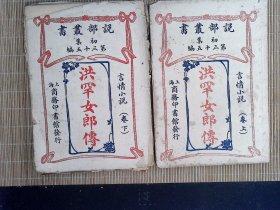 說部叢書
初集
第二十五編
言情小說
洪罕女郎傳
（卷下）
上海商務印書館發行
說部叢書
初集
第二十五編
言情小說
洪罕女郎傳
（卷上）
上海商務印書館發行